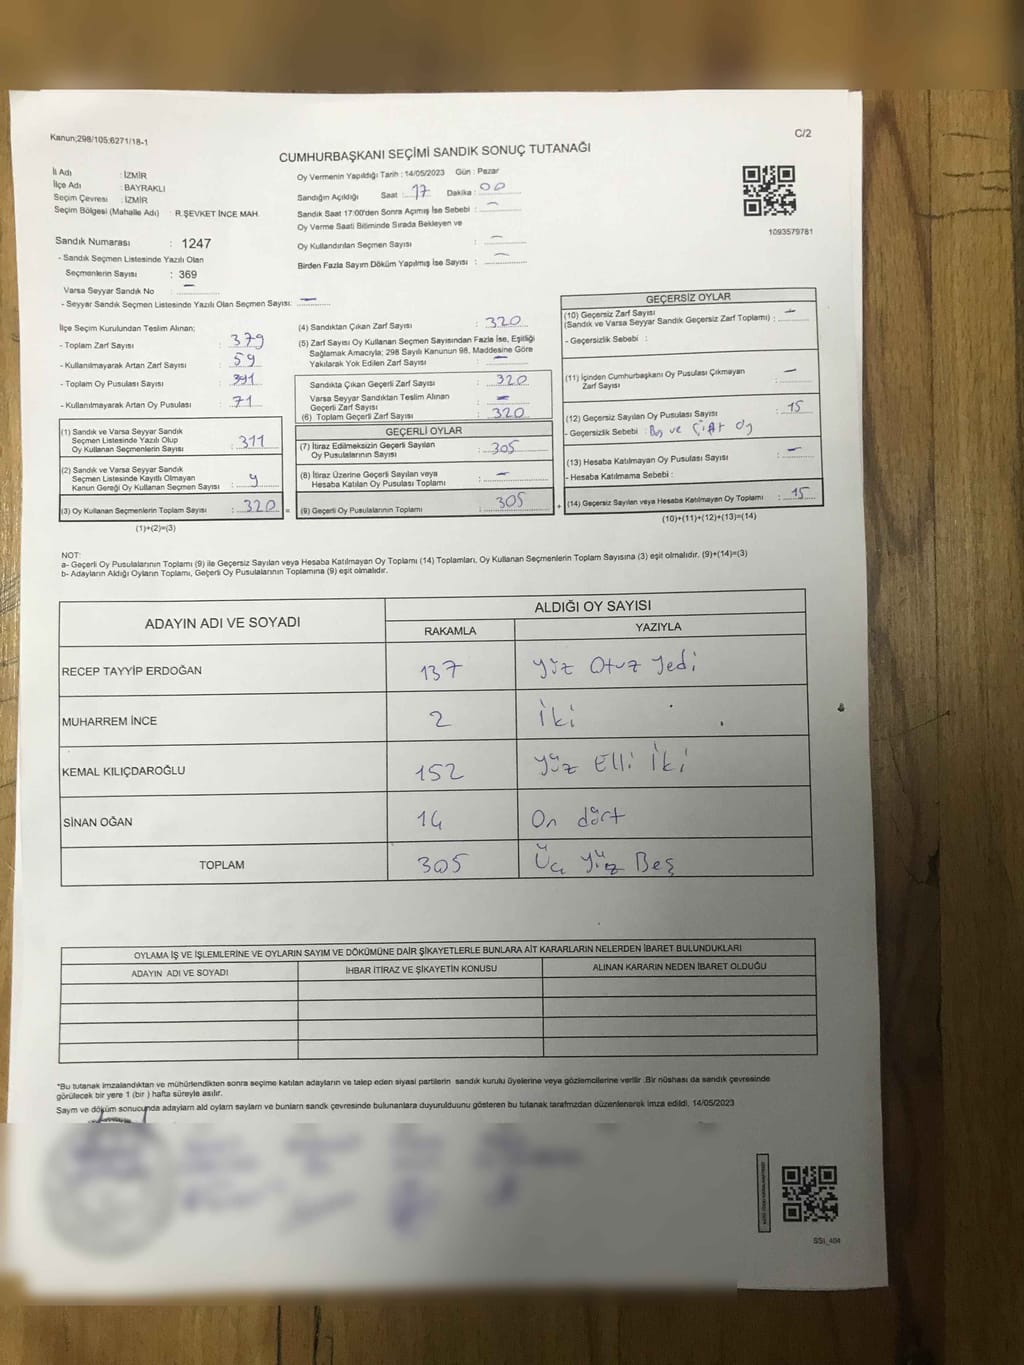 Kanun;298/105;6271/18-1
C/2
CUMHURBAŞKANI SEÇİMİ SANDIK SONUÇ TUTANAĞI
İl Adı : İZMİR
İlçe Adı : BAYRAKLI
Seçim Çevresi : İZMİR
Seçim Bölgesi (Mahalle Adı) : R.ŞEVKET İNCE MAH.
Sandık Numarası : 1247
- Sandık Seçmen Listesinde Yazılı Olan
Seçmenlerin Sayısı : 369
Varsa Seyyar Sandık No : —
- Seyyar Sandık Seçmen Listesinde Yazılı Olan Seçmen Sayısı: —
Oy Vermenin Yapıldığı Tarih : 14/05/2023 Gün : Pazar
Sandığın Açıldığı Saat : 17 Dakika : 00
Sandık Saat 17:00'den Sonra Açımış İse Sebebi : —
Oy Verme Saati Bitiminde Sırada Bekleyen ve
Oy Kullandırılan Seçmen Sayısı : —
Birden Fazla Sayım Döküm Yapılmış İse Sayısı : —
1093579781
İlçe Seçim Kurulundan Teslim Alınan;
- Toplam Zarf Sayısı : 379
- Kullanılmayarak Artan Zarf Sayısı : 59
- Toplam Oy Pusulası Sayısı : 391
- Kullanılmayarak Artan Oy Pusulası : 71
(1) Sandık ve Varsa Seyyar Sandık
Seçmen Listesinde Yazılı Olup
Oy Kullanan Seçmenlerin Sayısı : 311
(2) Sandık ve Varsa Seyyar Sandık
Seçmen Listesinde Kayıtlı Olmayan
Kanun Gereği Oy Kullanan Seçmen Sayısı : 9
(3) Oy Kullanan Seçmenlerin Toplam Sayısı : 320 =
(1)+(2)=(3)
(4) Sandıktan Çıkan Zarf Sayısı : 320
(5) Zarf Sayısı Oy Kullanan Seçmen Sayısından Fazla İse, Eşitliği
Sağlamak Amacıyla; 298 Sayılı Kanunun 98. Maddesine Göre
Yakılarak Yok Edilen Zarf Sayısı : —
Sandıkta Çıkan Geçerli Zarf Sayısı : 320
Varsa Seyyar Sandıktan Teslim Alınan
Geçerli Zarf Sayısı : —
(6) Toplam Geçerli Zarf Sayısı : 320
GEÇERLİ OYLAR
(7) İtiraz Edilmeksizin Geçerli Sayılan
Oy Pusulalarının Sayısı : 305
(8) İtiraz Üzerine Geçerli Sayılan veya
Hesaba Katılan Oy Pusulası Toplamı : —
(9) Geçerli Oy Pusulalarının Toplamı : 305 +
GEÇERSİZ OYLAR
(10) Geçersiz Zarf Sayısı
(Sandık ve Varsa Seyyar Sandık Geçersiz Zarf Toplamı) : —
- Geçersizlik Sebebi :
(11) İçinden Cumhurbaşkanı Oy Pusulası Çıkmayan
Zarf Sayısı : —
(12) Geçersiz Sayılan Oy Pusulası Sayısı : 15
- Geçersizlik Sebebi : Boş ve Çift oy
(13) Hesaba Katılmayan Oy Pusulası Sayısı : —
- Hesaba Katılmama Sebebi :
(14) Geçersiz Sayılan veya Hesaba Katılmayan Oy Toplamı : 15
(10)+(11)+(12)+(13)=(14)
NOT:
a- Geçerli Oy Pusulalarının Toplamı (9) ile Geçersiz Sayılan veya Hesaba Katılmayan Oy Toplamı (14) Toplamları, Oy Kullanan Seçmenlerin Toplam Sayısına (3) eşit olmalıdır. (9)+(14)=(3)
b- Adayların Aldığı Oyların Toplamı, Geçerli Oy Pusulalarının Toplamına (9) eşit olmalıdır.
ADAYIN ADI VE SOYADI
ALDIĞI OY SAYISI
RAKAMLA YAZIYLA
RECEP TAYYİP ERDOĞAN 137 Yüz Otuz Yedi
MUHARREM İNCE 2 İki
KEMAL KILIÇDAROĞLU 152 Yüz Elli İki
SİNAN OĞAN 14 On dört
TOPLAM 305 Üç Yüz Beş
OYLAMA İŞ VE İŞLEMLERİNE VE OYLARIN SAYIM VE DÖKÜMÜNE DAİR ŞİKAYETLERLE BUNLARA AİT KARARLARIN NELERDEN İBARET BULUNDUKLARI
ADAYIN ADI VE SOYADI İHBAR İTİRAZ VE ŞİKAYETİN KONUSU ALINAN KARARIN NEDEN İBARET OLDUĞU
*Bu tutanak imzalandıktan ve mühürlendikten sonra seçime katılan adayların ve talep eden siyasi partilerin sandık kurulu üyelerine veya gözlemcilerine verilir .Bir nüshası da sandık çevresinde
görülecek bir yere 1 (bir ) hafta süreyle asılır.
Sayım ve döküm sonucunda adayların ald oyların sayları ve bunların sandk çevresinde bulunanlara duyurulduunu gösteren bu tutanak tarafmzdan düzenlenerek imza edildi. 14/05/2023
SSI_404